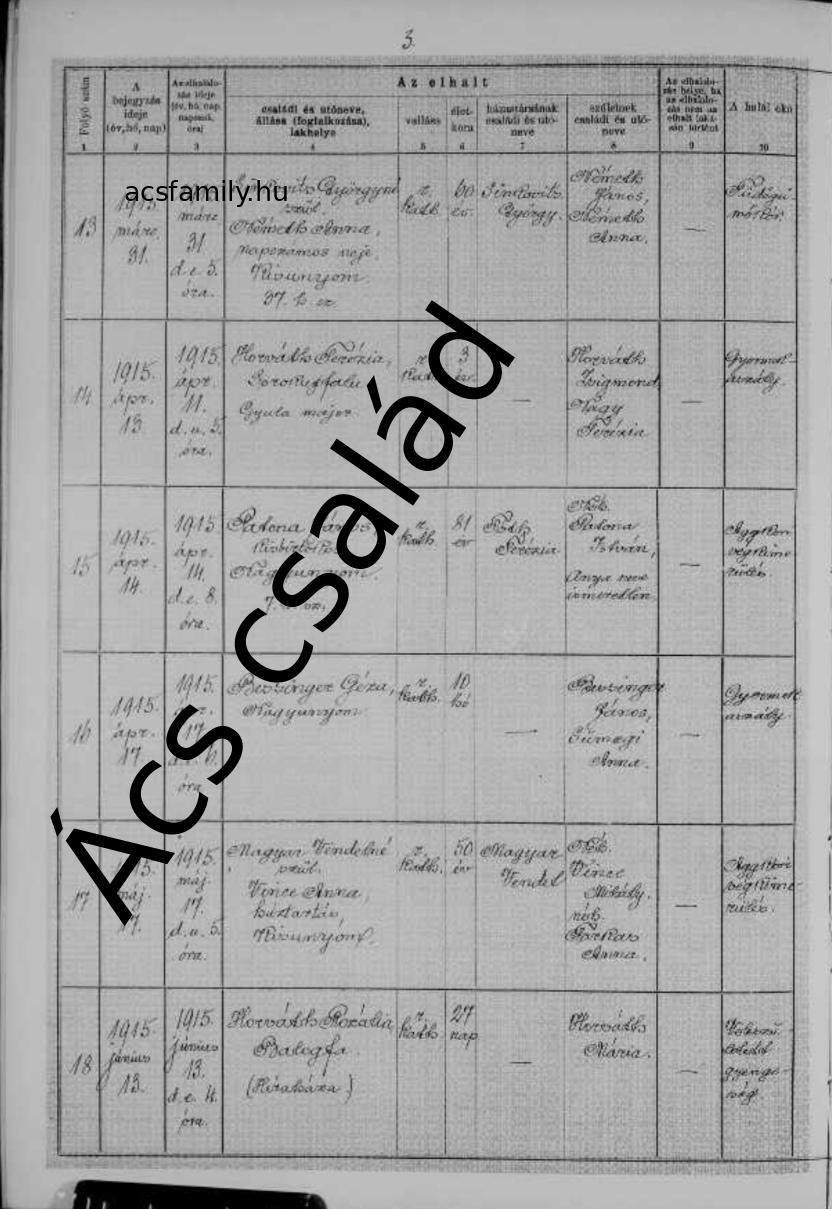 3.
Az elhalt
Folyó szám
A bejegyzés ideje (év, hó, nap)
Az elhalálozás ideje (év, hó, nap, napszak, óra)
családi és utóneve, állása (foglalkozása), lakhelye
vallása
életkora
házastársának családi és utóneve
szüleinek családi és utóneve
Az elhalálozás helye, ha az elhalálozás nem az elhalt lakásán történt
A halál oka
1 2 3 4 5 6 7 8 9 10
acsfamily.hu
Ács család
13
1915. márc. 31.
márc 31. d.e. 5. óra.
Györgyné
szül.
Németh Anna,
napszamos neje,
Kisunyom
37. h. sz.
r. kath.
60 év.
Sinkovits György.
Németh János,
Németh Anna.
—
14
1915. ápr. 13.
1915. ápr. 11. d.u. 5. óra.
Horváth Terézia,
Gyula major
r. kath.
3 év.
—
Horváth Zsigmond,
Nagy Terézia
—
Gyermek-aszály.
15
1915. ápr. 14.
1915 ápr. 14. d.e. 8. óra.
Patona
Nagyunyom.
7.
r. kath.
81 év
Tóth Terézia
Néh. Patona István,
Anya neve ismeretlen.
—
Aggkori végkimerülés.
16
1915. ápr. 17.
1915. 17. d.e. 6. óra
Bessinger Géza,
Nagyunyom
r. kath.
10 hó
—
Bessinger János,
Sümegi Anna.
—
Gyermek aszály.
17
máj. 17.
1915. máj. 17. d.u. 5. óra.
Magyar Vendelné
szül.
Vince Anna,
háztartás,
Kisunyom.
r. kath.
50 év
Magyar Vendel
Néh. Vince Mihály.
néh. Farkas Anna.
—
Aggkori végkimerülés.
18
1915. június 13.
1915. június 13. d.e. 4. óra.
Horváth Rozália
Balogfa.
r. kath.
27 nap
—
Horváth Mária.
—
gyengeség.